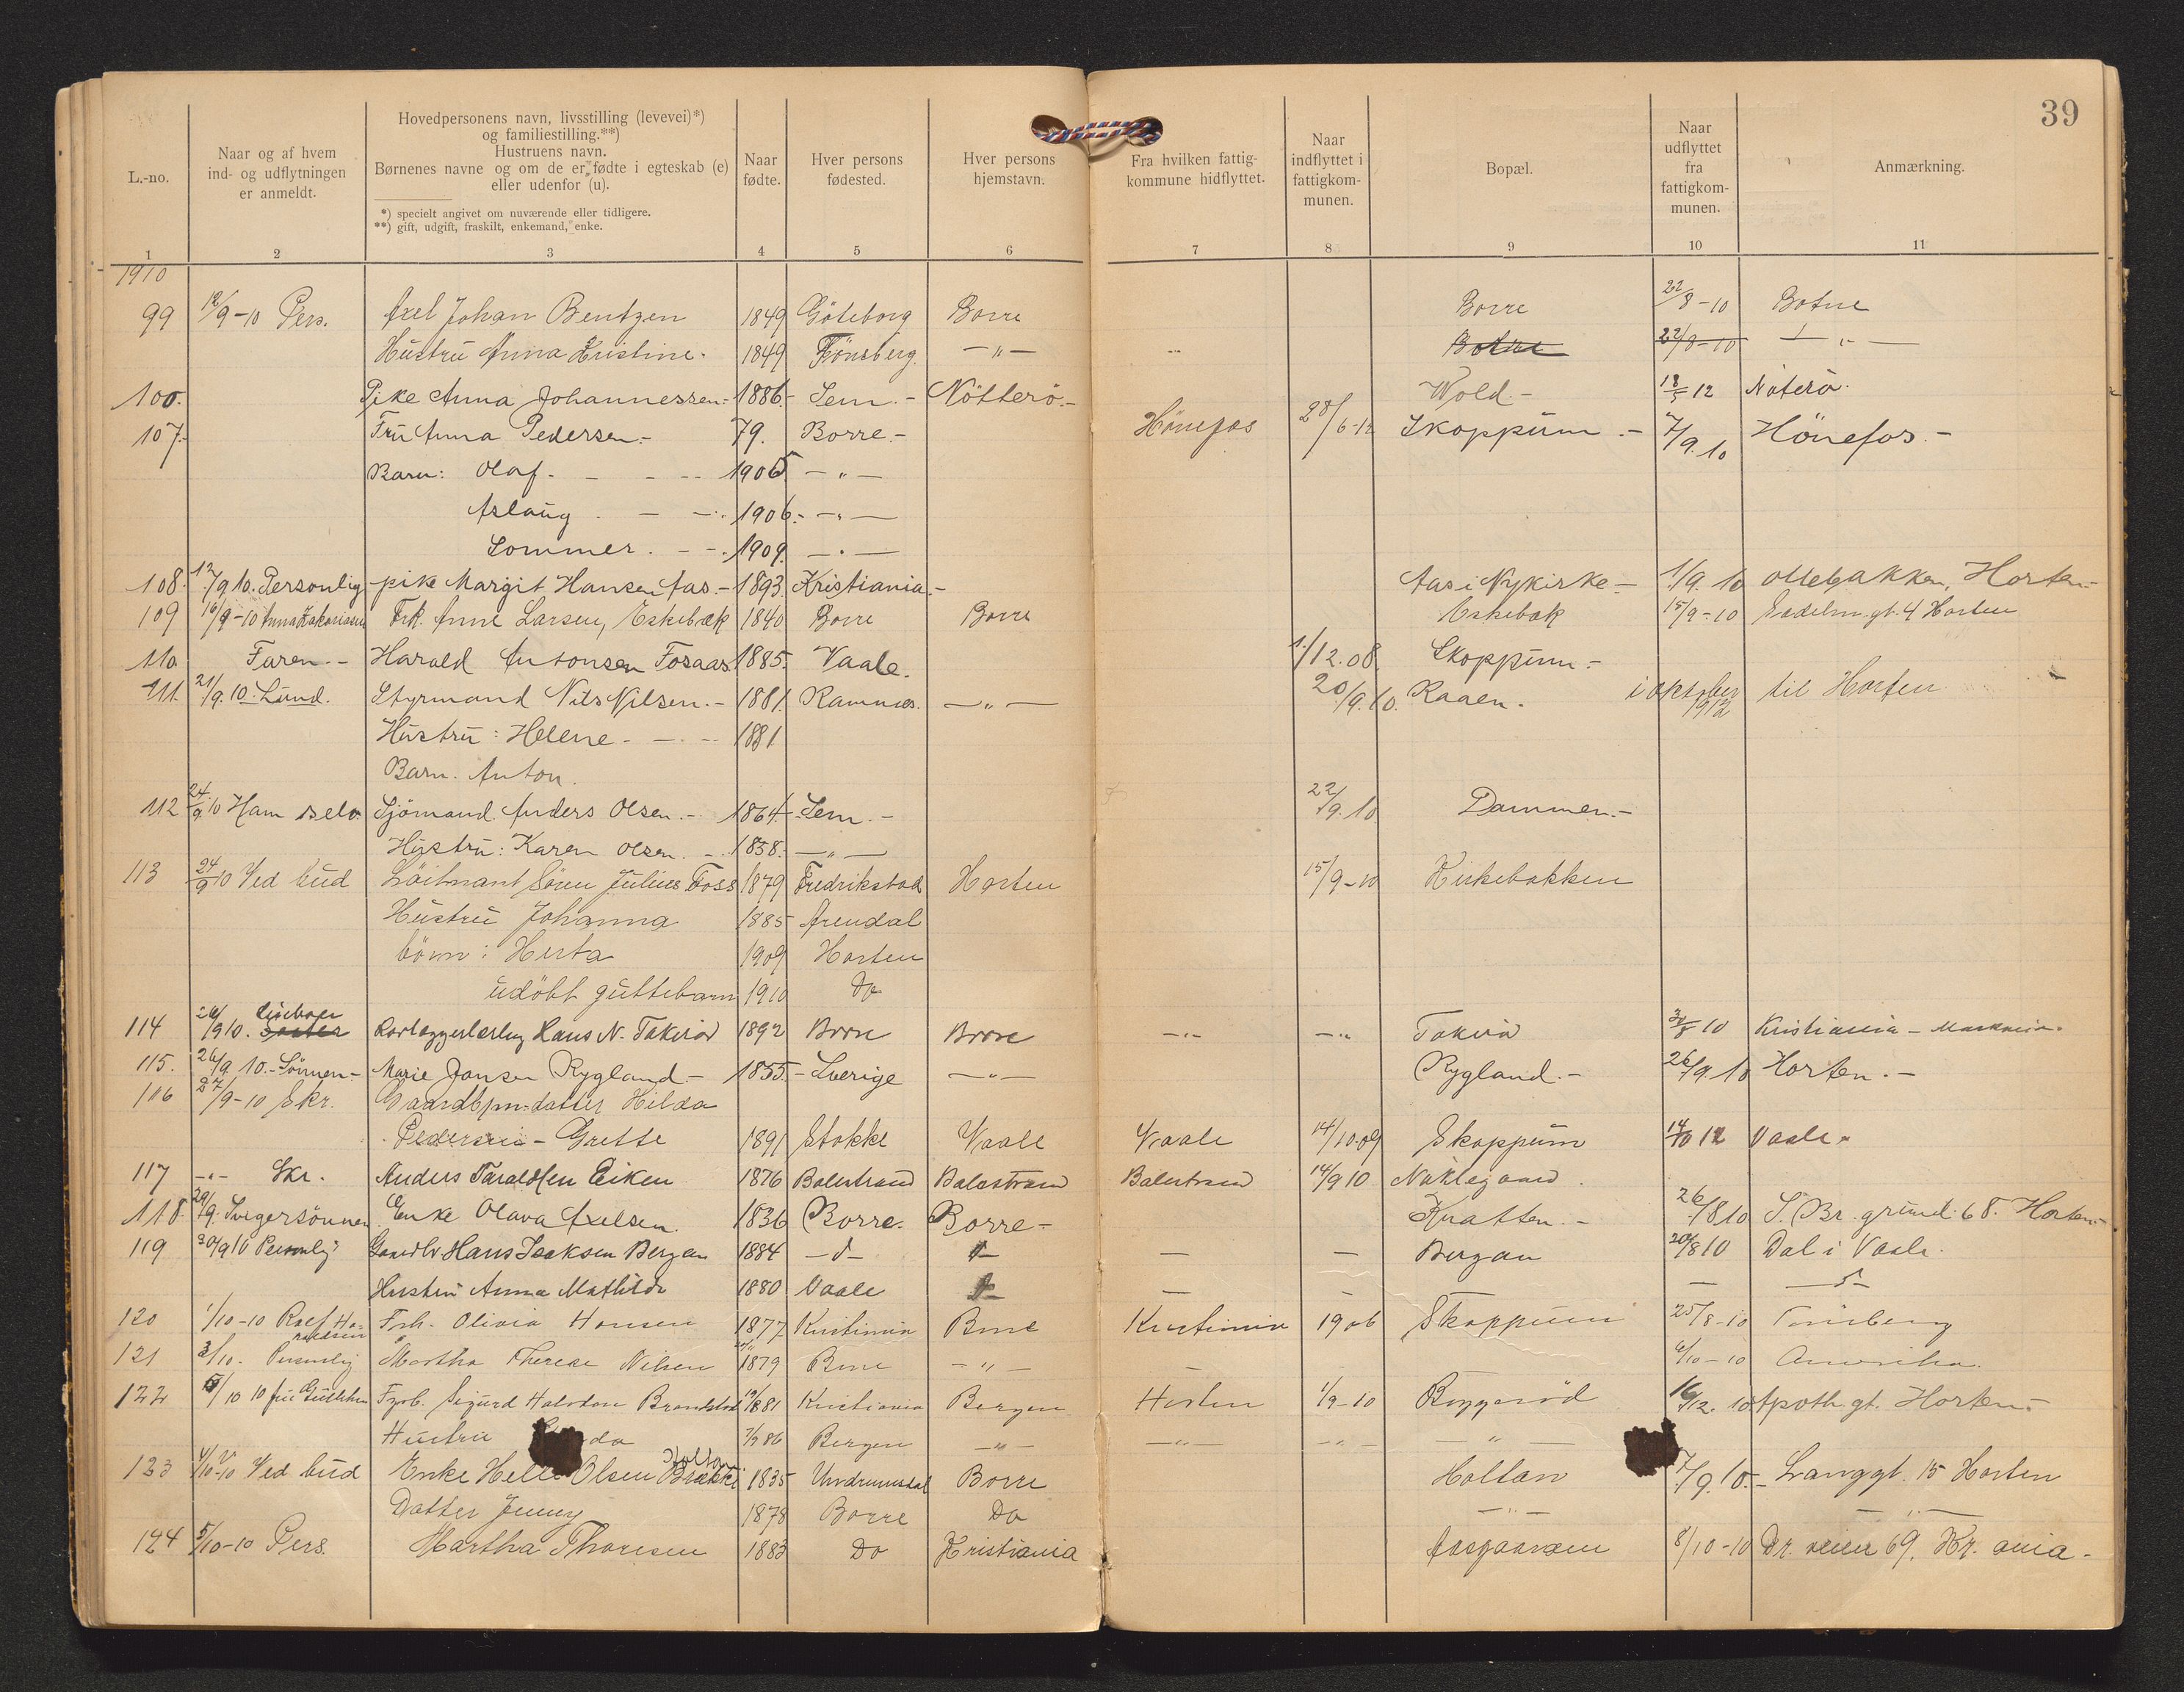 39
L.-no.
Naar og af hvem
ind- og udflytningen
er anmeldt.
Hovedpersonens navn, livsstilling (levevei)*)
og familiestilling.**)
Hustruens navn.
Børnenes navne og om de er fødte i egteskab (e)
eller udenfor (u).
*) specielt angivet om nuværende eller tidligere.
**) gift, udgift, fraskilt, enkemand, enke.
Naar
fødte.
Hver persons
fødested.
Hver persons
hjemstavn.
Fra hvilken fattig-
kommune hidflyttet.
Naar
indflyttet i
fattigkom-
munen.
Bopæl.
Naar
udflyttet
fra
fattigkom-
munen.
Anmærkning.
1 2 3 4 5 6 7 8 9 10 11
1910
99 12/9-10 Pers. Axel Johan Bentzen 1849 Göteborg Borre Borre 22/8-10 Botne
Hustru Anna Kristine. 1849 Tönsberg. -"- Botne 22/8-10 -"-
100. Pike Anna Johannessen.- 1886.- Sem.- Nötterö.- Wold.- 18/5 12 Nöterö.
107.- Fru Anna Pedersen.- 79. Borre.- Hönefos 28/6-12 Skoppum.- 7/9.10 Hönefos.-
Barn: Olaf.- 1905 -"-
Aslaug.- 1906.- -"-
Sommer.- 1909. -"-
108. 12/9.10. Personlig pike Margit Hansen Aas.- 1893. Kristiania.- Aas i Nykirke.- 1/9.10 Ollebakken, Horten.-
109 16/9-10 Anna Zakariasen Frk. Anne Larsen, Eskebæk 1840 Borre Borre Eskebæk 15/9-10 gt. 4 Horten
110. Faren.- Harald Antonsen Fosaas 1885. Vaale. 1/12.08 Skoppum.-
111. 21/9.10. Lund. Styrmand Nils Nilsen.- 1881. Ramnes. -"- 20/9.10. Raaen. i oktober 1912 til Horten
Hustru: Helene.- 1881
Barn. Anton.
112 24/9 10 Ham selv Sjömand. Anders Olsen.- 1864.- Sem.- 22/9.10 Dammen.-
Hustru: Karen Olsen.- 1858.- -"-
113 24/9 10 Ved bud Löitnant Sören Julius Foss 1879 Fredrikstad Horten 15/9-10 Kirkebakken
Hustru Johanna 1885 Arendal
börn: Herta 1909 Horten
udöbt guttebarn 1910 Do
114 26/9 10. Hans N. Takerød 1892 Borre Borre -"- -"- Takerød 30/8 10 Kristiania -
115. 26/9 10.- Sönnen.- Marie Jansen Rygland.- 1855.- Sverige -"- Rygland.- 26/9.10 Horten.-
106 27/9-10 Skr. Gaardbrn.datter Hilda
Pedersen - Grette 1891 Stokke Vaale Vaale 14/10.09 Skoppum 14/10 12 Vaale.
117 -"- Skr. Anders Taraldsen Eiken 1876 Balestrand Balestrand Balestrand 14/9 10 Naklegaard.
118. 29/9. Svigersönnen Enke Olava Axelsen. 1836 Borre. Borre- Knatten.- 26/8 10 S. Br. grund. 68. Horten.-
119 30/9 10 Personlig Gaardbr Hans Isaksen Bergan 1884 -d- -d- - - Bergan 20/8 10 Dal i Vaale.
Hustru Anna Mathilde 1880 Vaale - - -
120 1/10-10 Frk. Olivia Hansen 1877 Kristiania Borre Kristiania 1906 Skoppum 25/8-10 Tönsberg
121 3/10. Personlig Martha Therese Nilsen 1879 Borre -"- - 6/10-10 Amerika.
122 5/10 10 fru Sigurd Halvdan 12/8 81 Kristiania Bergen Horten 1/9-10 Byggeröd 16/12.10 Apoth.gt. Horten.-
Hustru 7/9 86 Bergen -"- -"- -"- -"-
123 4/10-10 Ved bud Enke Olsen Brække Holtan. 1835 Undrumsdal Borre Holtan 7/9.10.- Langgt. 15 Horten
Datter Jenny 1878 Borre Do -"- -"-
124 5/10-10 Pers. Martha Thoresen 1883 Do Kristiania Aasgaarden 8/10-10 Dr. veien 69. Kr.ania-